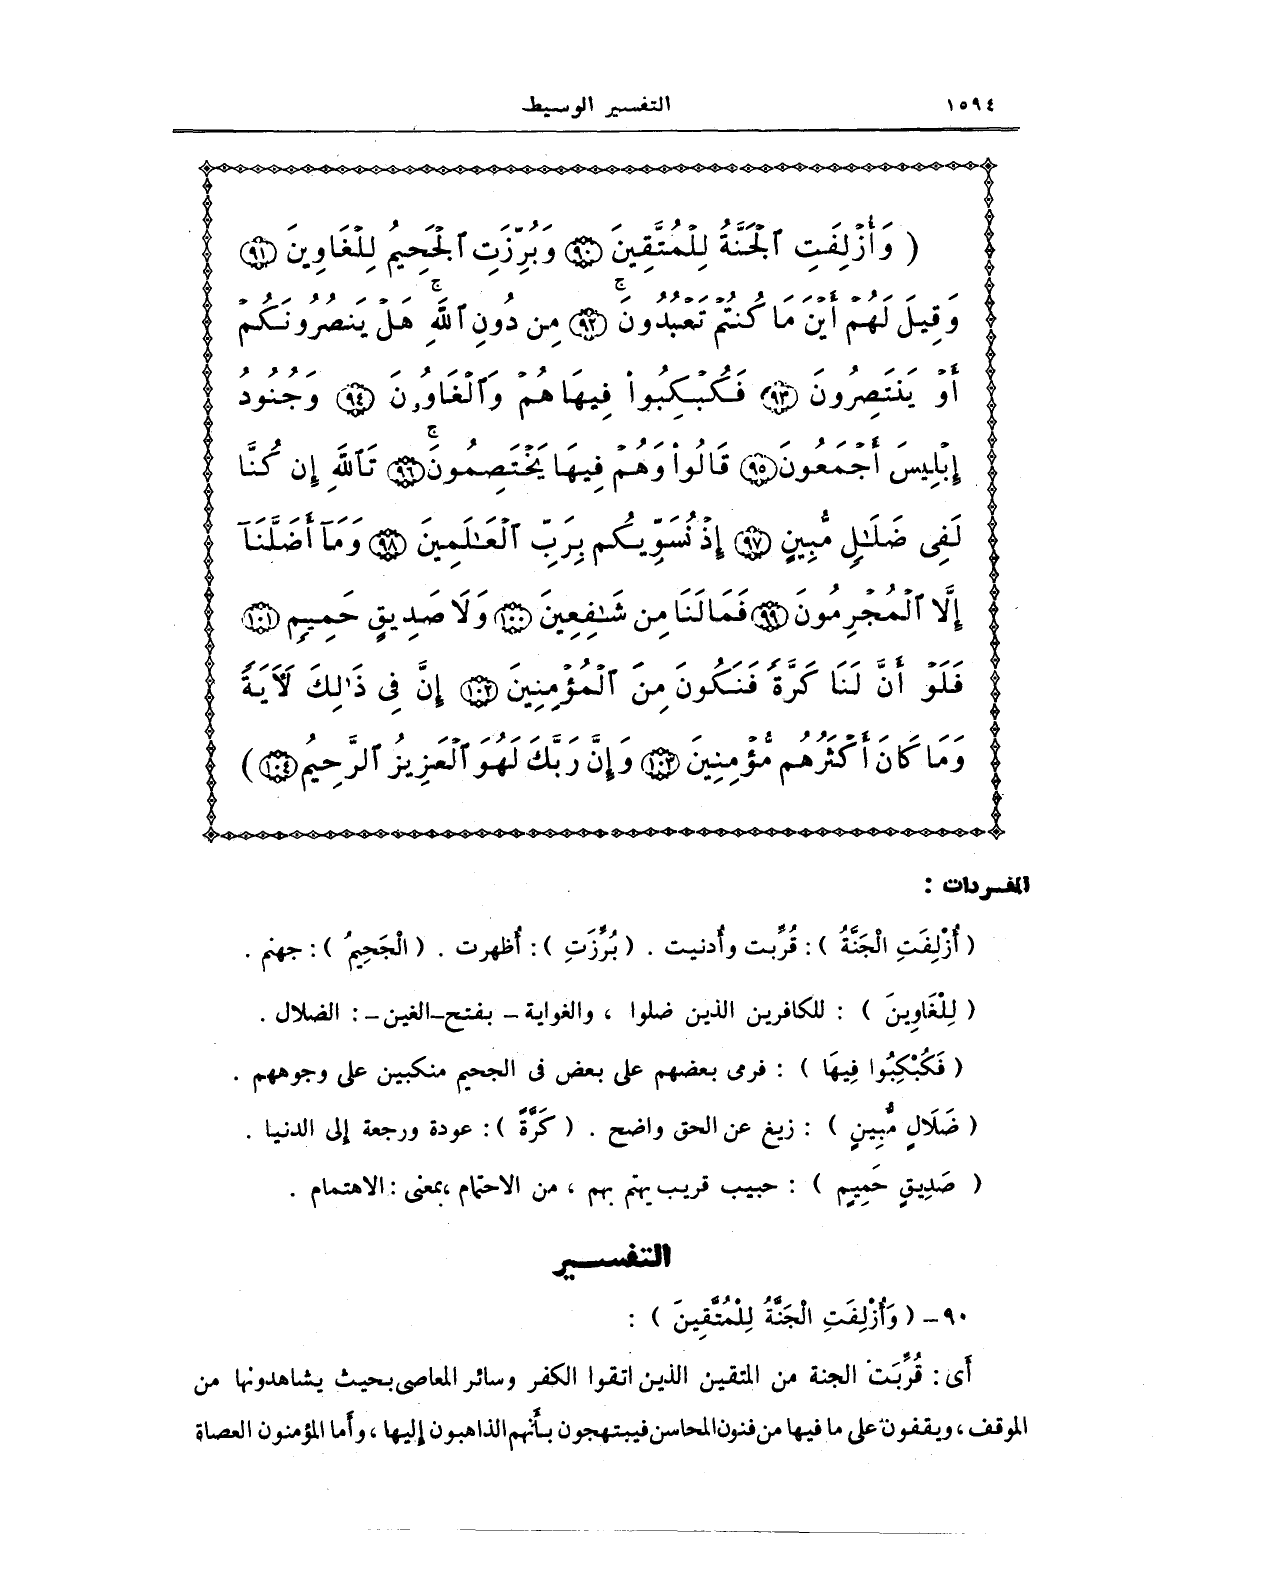 ١٥٩٤ التفسير الوسيط
( وَأُزْلِفَتِ ٱلْجَنَّةُ لِلْمُتَّقِينَ ۝٩٠ وَبُرِّزَتِ ٱلْجَحِيمُ لِلْغَاوِينَ ۝٩١
وَقِيلَ لَهُمْ أَيْنَ مَا كُنتُمْ تَعْبُدُونَ ۚ ۝٩٢ مِن دُونِ ٱللَّهِ ۚ هَلْ يَنصُرُونَكُمْ
أَوْ يَنتَصِرُونَ ۝٩٣ فَكُبْكِبُوا۟ فِيهَا هُمْ وَٱلْغَاوُۥنَ ۝٩٤ وَجُنُودُ
إِبْلِيسَ أَجْمَعُونَ ۝٩٥ قَالُوا۟ وَهُمْ فِيهَا يَخْتَصِمُونَ ۚ ۝٩٦ تَٱللَّهِ إِن كُنَّا
لَفِى ضَلَـٰلٍ مُّبِينٍ ۝٩٧ إِذْ نُسَوِّيكُم بِرَبِّ ٱلْعَـٰلَمِينَ ۝٩٨ وَمَآ أَضَلَّنَآ
إِلَّا ٱلْمُجْرِمُونَ ۝٩٩ فَمَا لَنَا مِن شَـٰفِعِينَ ۝١٠٠ وَلَا صَدِيقٍ حَمِيمٍ ۝١٠١
فَلَوْ أَنَّ لَنَا كَرَّةً فَنَكُونَ مِنَ ٱلْمُؤْمِنِينَ ۝١٠٢ إِنَّ فِى ذَٰلِكَ لَـَٔايَةً
وَمَا كَانَ أَكْثَرُهُم مُّؤْمِنِينَ ۝١٠٣ وَإِنَّ رَبَّكَ لَهُوَ ٱلْعَزِيزُ ٱلرَّحِيمُ ۝١٠٤ )
المفردات :
( أُزْلِفَتِ الْجَنَّةُ ) : قُرِّبت وأُدنيت . ( بُرِّزَتِ ) : أُظهرت . ( الْجَحِيمُ ) : جهنم .
( لِلْغَاوِينَ ) : للكافرين الذين ضلوا ، والغواية – بفتح الغين – : الضلال .
( فَكُبْكِبُوا فِيهَا ) : فرمى بعضهم على بعض فى الجحيم منكبين على وجوههم .
( ضَلَالٍ مُّبِينٍ ) : زيغ عن الحق واضح . ( كَرَّةً ) : عودة ورجعة إلى الدنيا .
( صَدِيقٍ حَمِيمٍ ) : حبيب قريب يهتم بهم ، من الاحتمام ، بمعنى : الاهتمام .
التفسير
٩٠ – ( وَأُزْلِفَتِ الْجَنَّةُ لِلْمُتَّقِينَ ) :
أَى : قُرِّبَت الجنة من المتقين الذين اتقوا الكفر وسائر المعاصى بحيث يشاهدونها من
الموقف ، ويقفون على ما فيها من فنون المحاسن فيبتهجون بأَنهم الذاهبون إليها ، وأَما المؤمنون العصاة